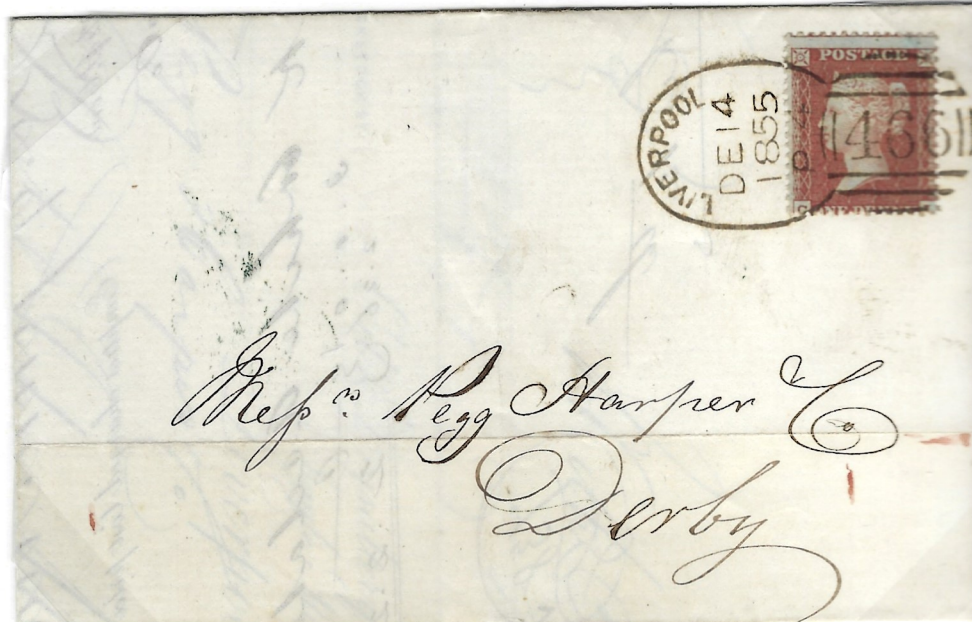 POSTAGE
LIVERPOOL
DE 14
1855
466
Mess.rs Pegg Harper & Co
Derby